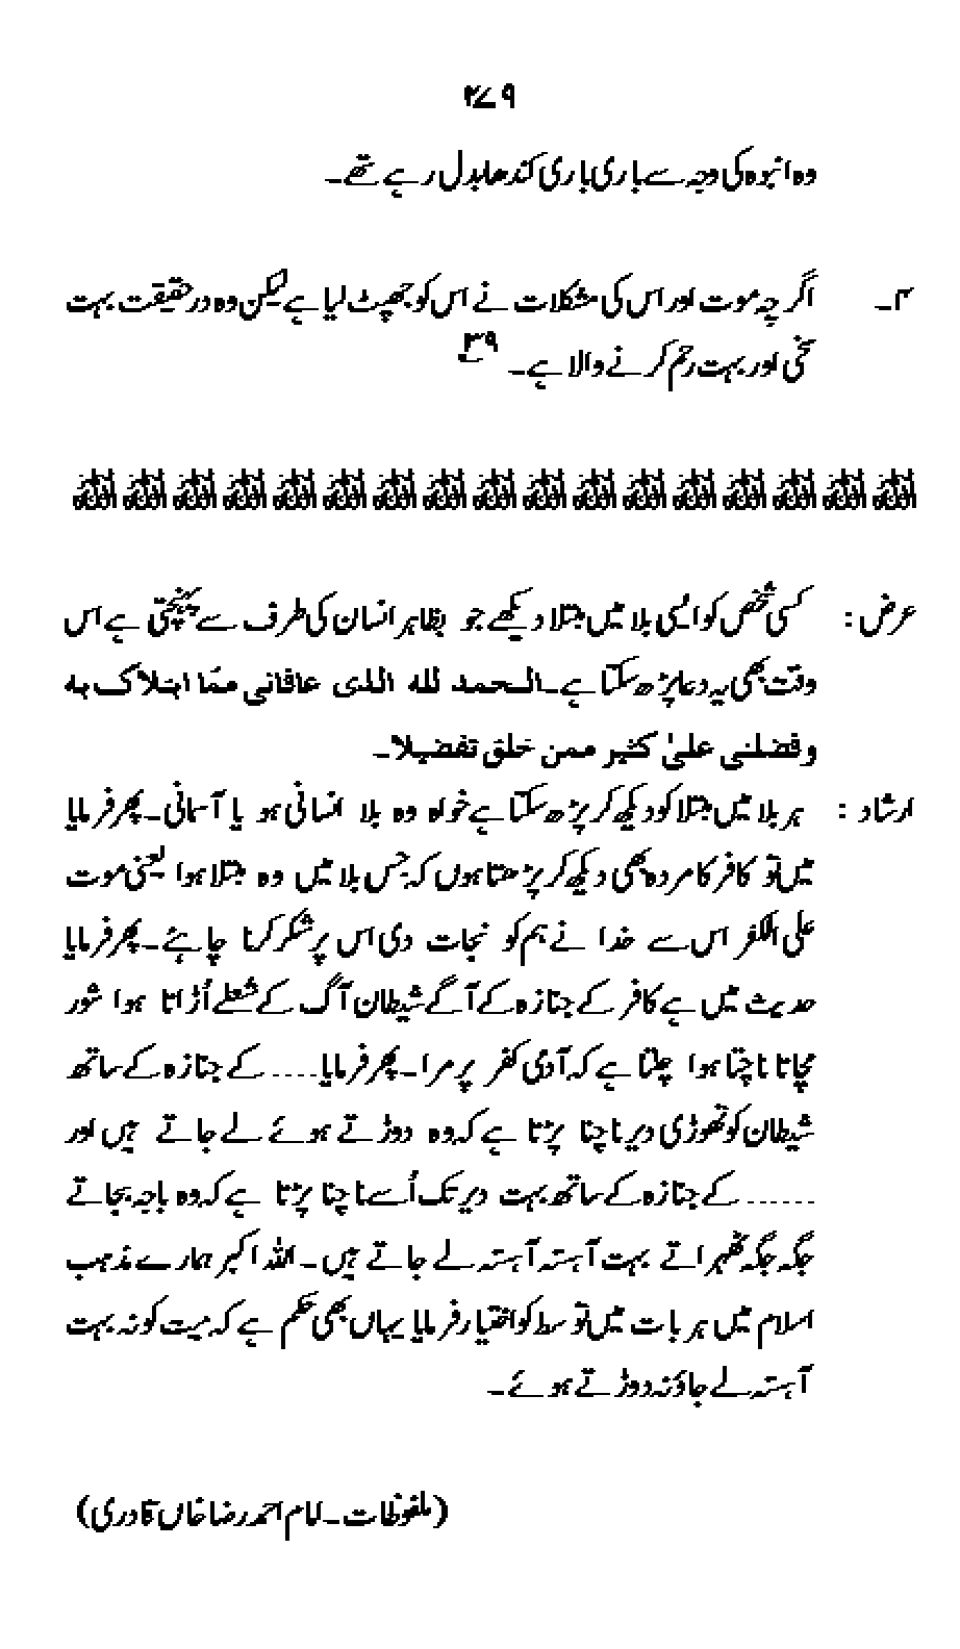 ۲۷۹
وہ انبوہ کی وجہ سے باری باری کندھا بدل رہے تھے۔
۴۔ اگرچہ موت اور اس کی مشکلات نے اس کو جھپٹ لیا ہے لیکن وہ درحقیقت بہت
سخی اور بہت رحم کرنے والا ہے۔ ۳۹
عرض : کسی شخص کو ایسی بلا میں مبتلا دیکھے جو بظاہر انسان کی طرف سے پہنچتی ہے اس
وقت بھی یہ دعا پڑھ سکتا ہے۔ الحمد للہ الذی عافانی ممّا ابتلاک بہ
وفضلنی علیٰ کثیر ممن خلق تفضیلا۔
ارشاد : ہر بلا میں مبتلا کو دیکھ کر پڑھ سکتا ہے خواہ وہ بلا انسانی ہو یا آسمانی۔ پھر فرمایا
میں تو کافر کا مردہ بھی دیکھ کر پڑھتا ہوں کہ جس بلا میں وہ مبتلا ہوا یعنی موت
علی الکفر اس سے خدا نے ہم کو نجات دی اس پر شکر کرنا چاہئے۔ پھر فرمایا
حدیث میں ہے کافر کے جنازہ کے آگے شیطان آگ کے شعلے اُڑاتا ہوا شور
مچاتا ناچتا ہوا چلتا ہے کہ آدمی کفر پر مرا۔ پھر فرمایا.... کے جنازہ کے ساتھ
شیطان کو تھوڑی دیر ناچنا پڑتا ہے کہ وہ دوڑتے ہوئے لے جاتے ہیں اور
...... کے جنازہ کے ساتھ بہت دیر تک اُسے ناچنا پڑتا ہے کہ وہ باجہ بجاتے
جگہ جگہ ٹھہراتے بہت آہستہ آہستہ لے جاتے ہیں۔ اللہ اکبر ہمارے مذہب
اسلام میں ہر بات میں توسط کو اختیار فرمایا یہاں بھی حکم ہے کہ میت کو نہ بہت
آہستہ لے جاؤ نہ دوڑتے ہوئے۔
(ملفوظات۔ امام احمد رضا خاں قادری)